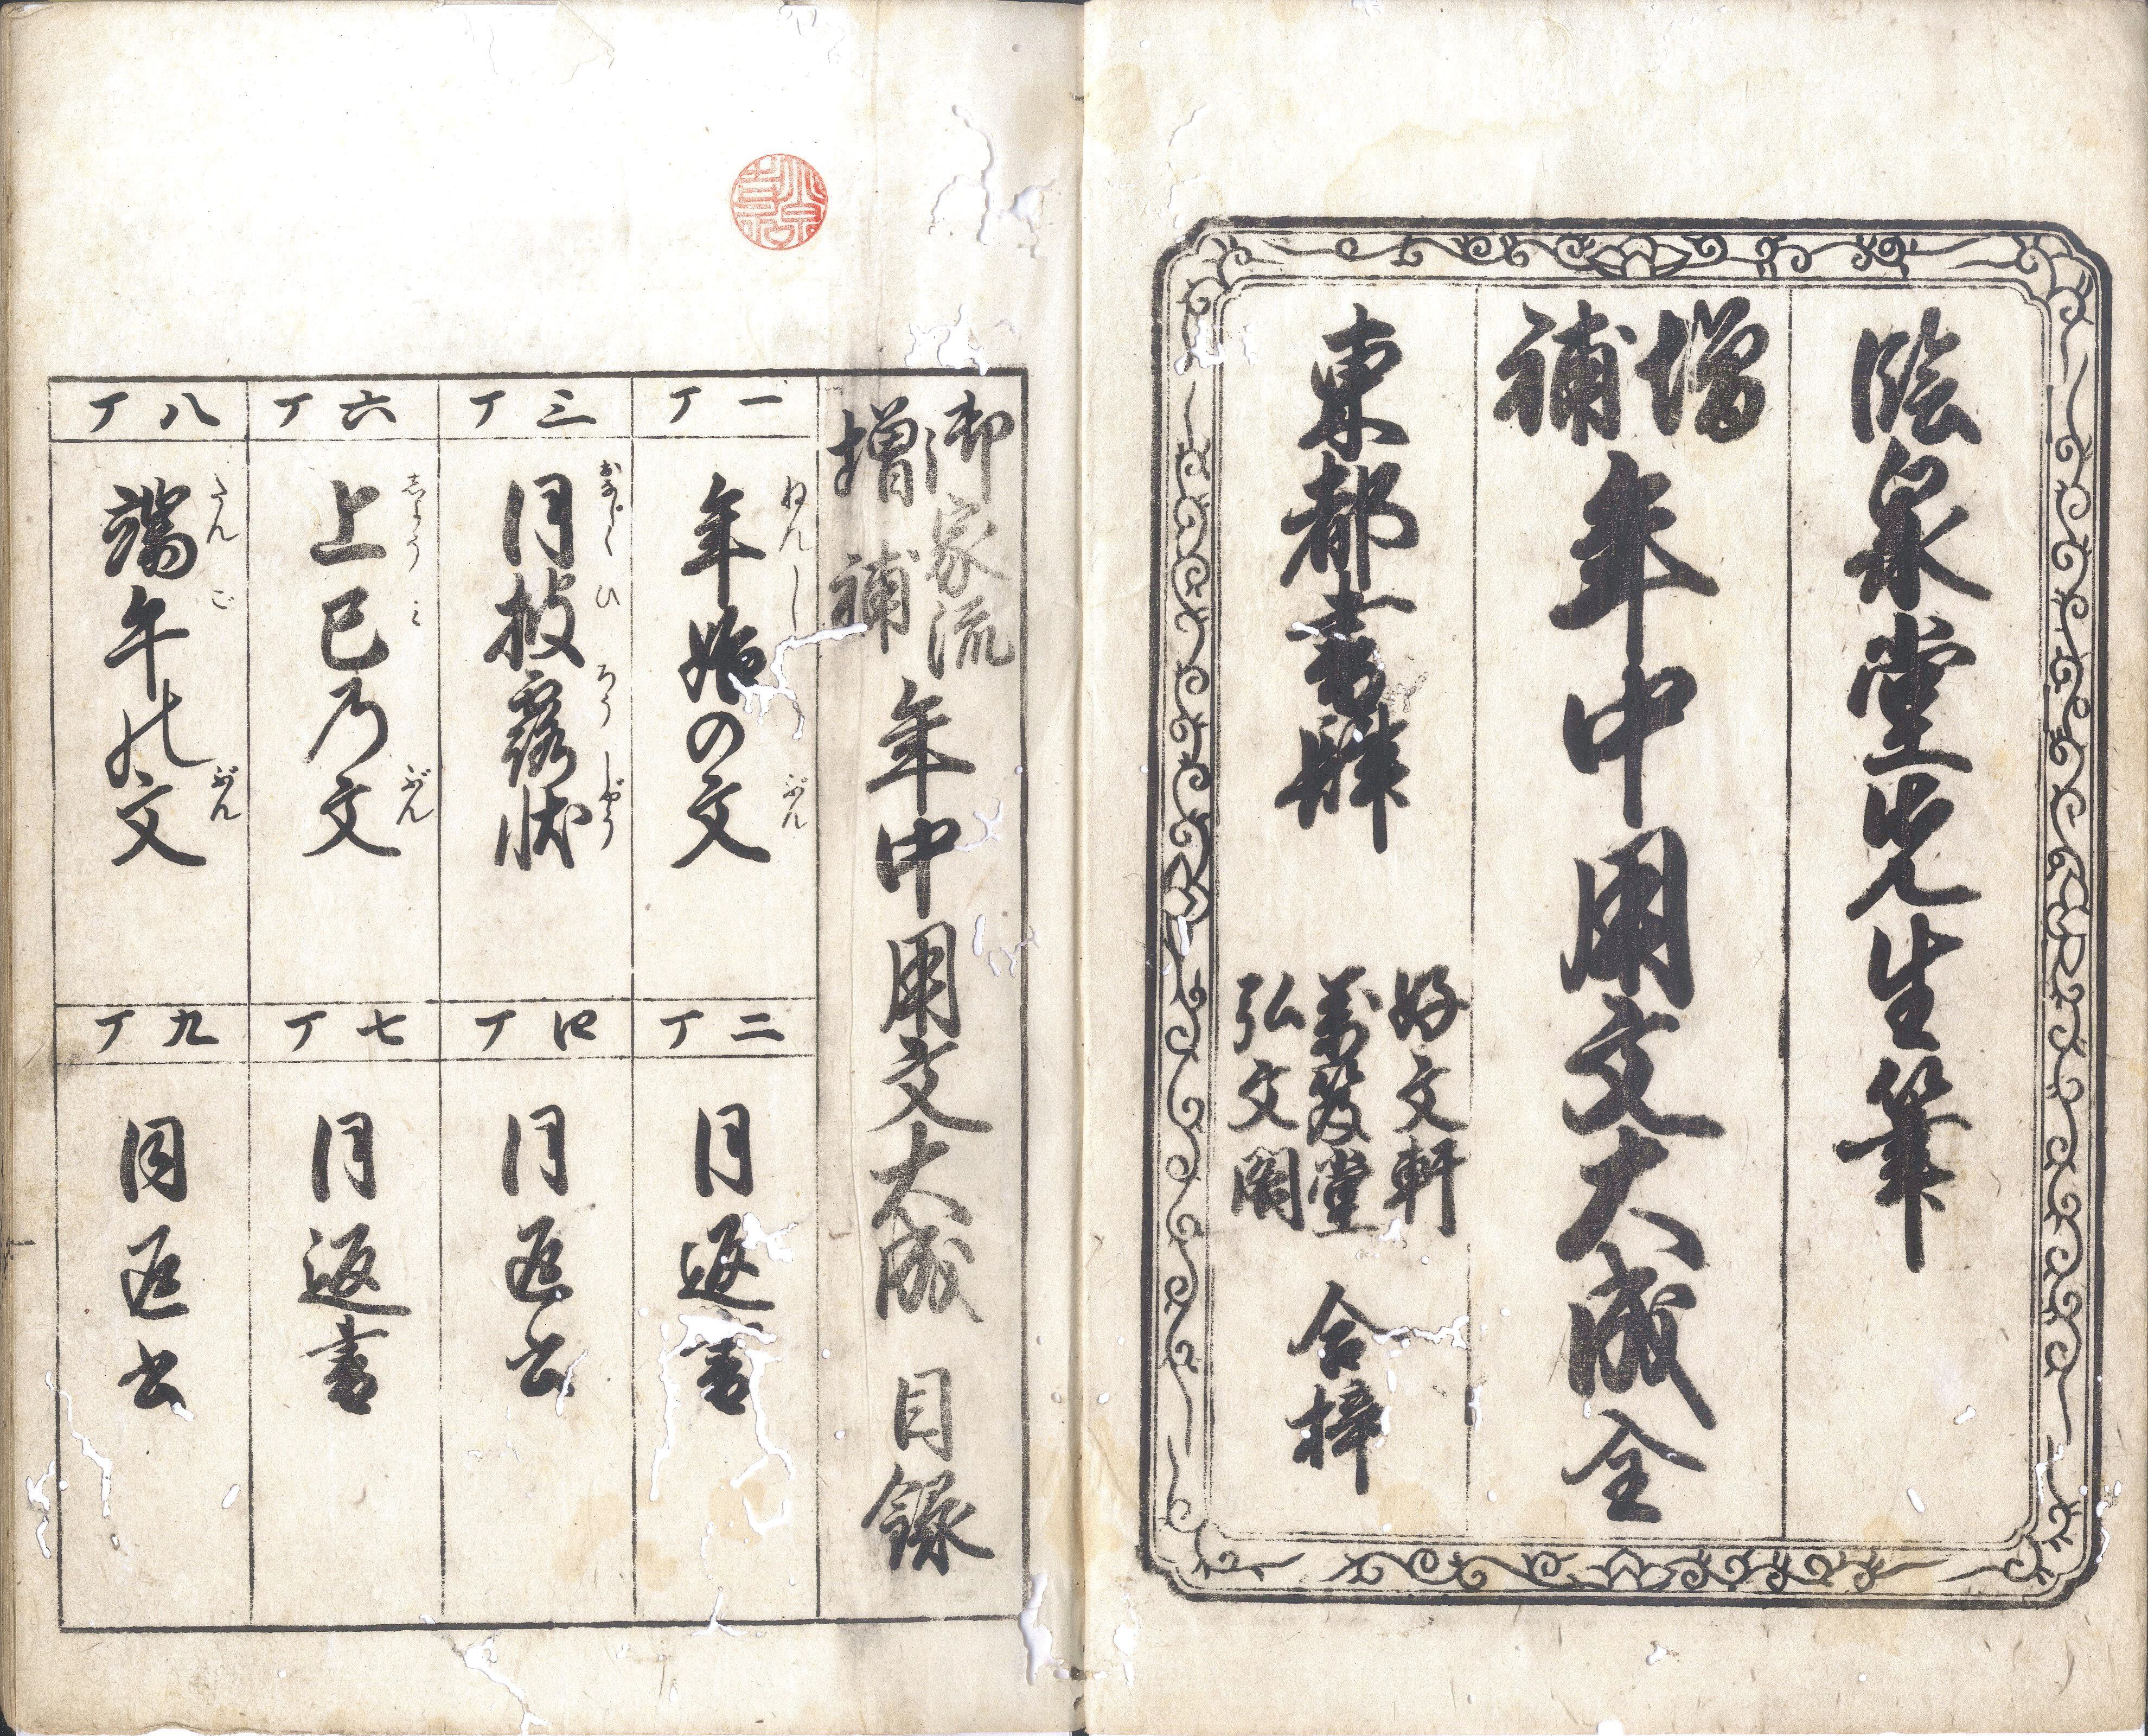 陰泉堂先生筆
増補
年中用文大成全
東都書肆
好文軒
萬笈堂
弘文閣
合梓
御家流
増補
年中用文大成 目録
一丁
年始の文
ねんし ぶん
二丁
同返書
三丁
同披露状
おなじく ひ ろう じやう
四丁
同返書
六丁
上巳乃文
志やう み ぶん
七丁
同返書
八丁
端午の文
たん ご ぶん
九丁
同返書